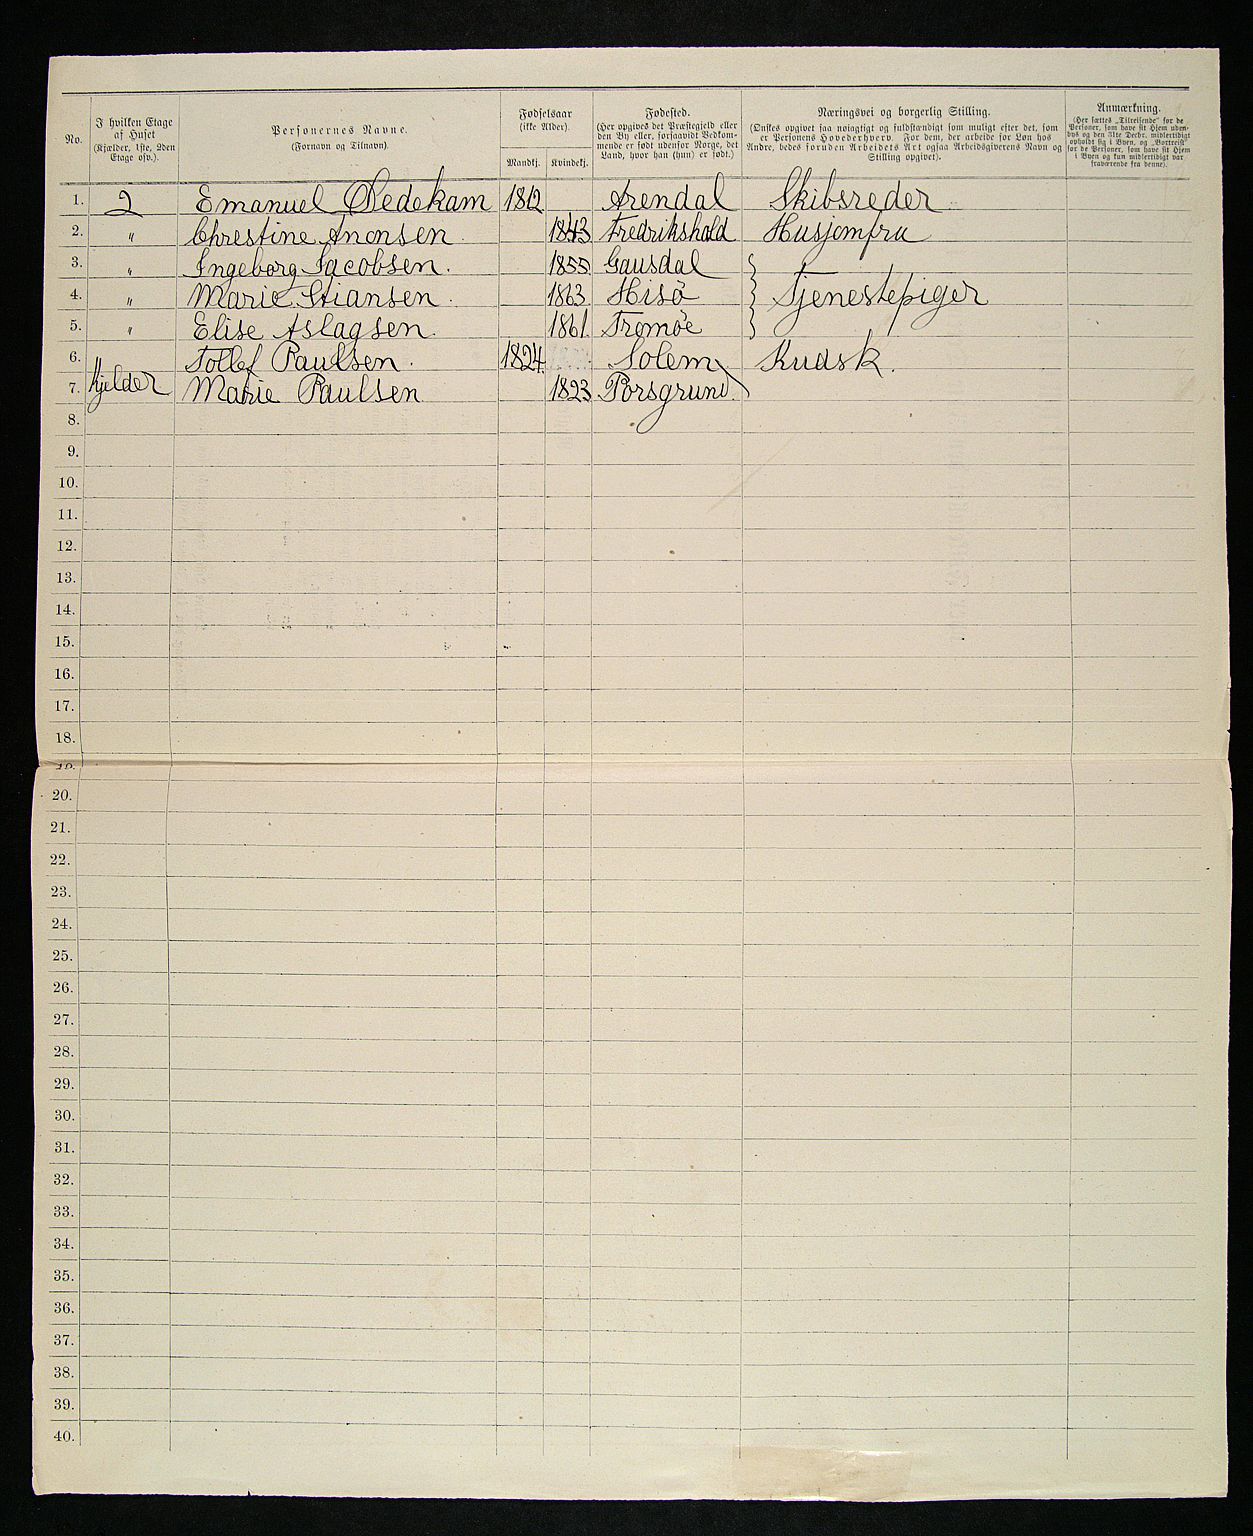 No.
I hvilken Etage af Huset
(Kjælder, 1ste, 2den Etage osv.).
Personernes Navne.
(Fornavn og Tilnavn).
Fødselsaar
(ikke Alder).
Mandkj. Kvindekj.
Fødested.
(Her opgives det Præstegjeld eller
den By eller, forsaavidt Vedkom-
mende er født udenfor Norge, det
Land, hvor han (hun) er født.)
Næringsvei og borgerlig Stilling.
(Ønskes opgivet saa nøiagtigt og fuldstændigt som muligt efter det, som
er Personens Hovederhverv. For dem, der arbeide for Løn hos
Andre, bedes foruden Arbeidets Art ogsaa Arbeidsgiverens Navn og
Stilling opgivet).
Anmærkning.
(Her sættes „Tilreisende“ for de
Personer, som have sit Hjem uden-
bys og den 31te Decbr. midlertidigt
opholdt sig i Byen, og „Bortreist“
for de Personer, som have sit Hjem
i Byen og kun midlertidigt var
fraværende fra denne).
1. 2 Emanuel Dedekam 1812 Arendal Skibsreder
2. " Chrestine Anonsen 1843 Fredrikshald Husjomfru
3. " Ingeborg Jacobsen. 1855 Gausdal
4. " Marie Stiansen 1863 Hisö } Tjenestepiger
5. " Elise Aslagsen. 1861 Tromöe
6. Tollef Paulsen. 1824 Solem Kudsk.
7. Kjelder Marie Paulsen 1823 Porsgrund.
8.
9.
10.
11.
12.
13.
14.
15.
16.
17.
18.
19.
20.
21.
22.
23.
24.
25.
26.
27.
28.
29.
30.
31.
32.
33.
34.
35.
36.
37.
38.
39.
40.